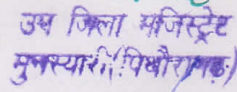 उप जिला मजिस्ट्रेट
मुनस्यारी (पिथौरागढ़)